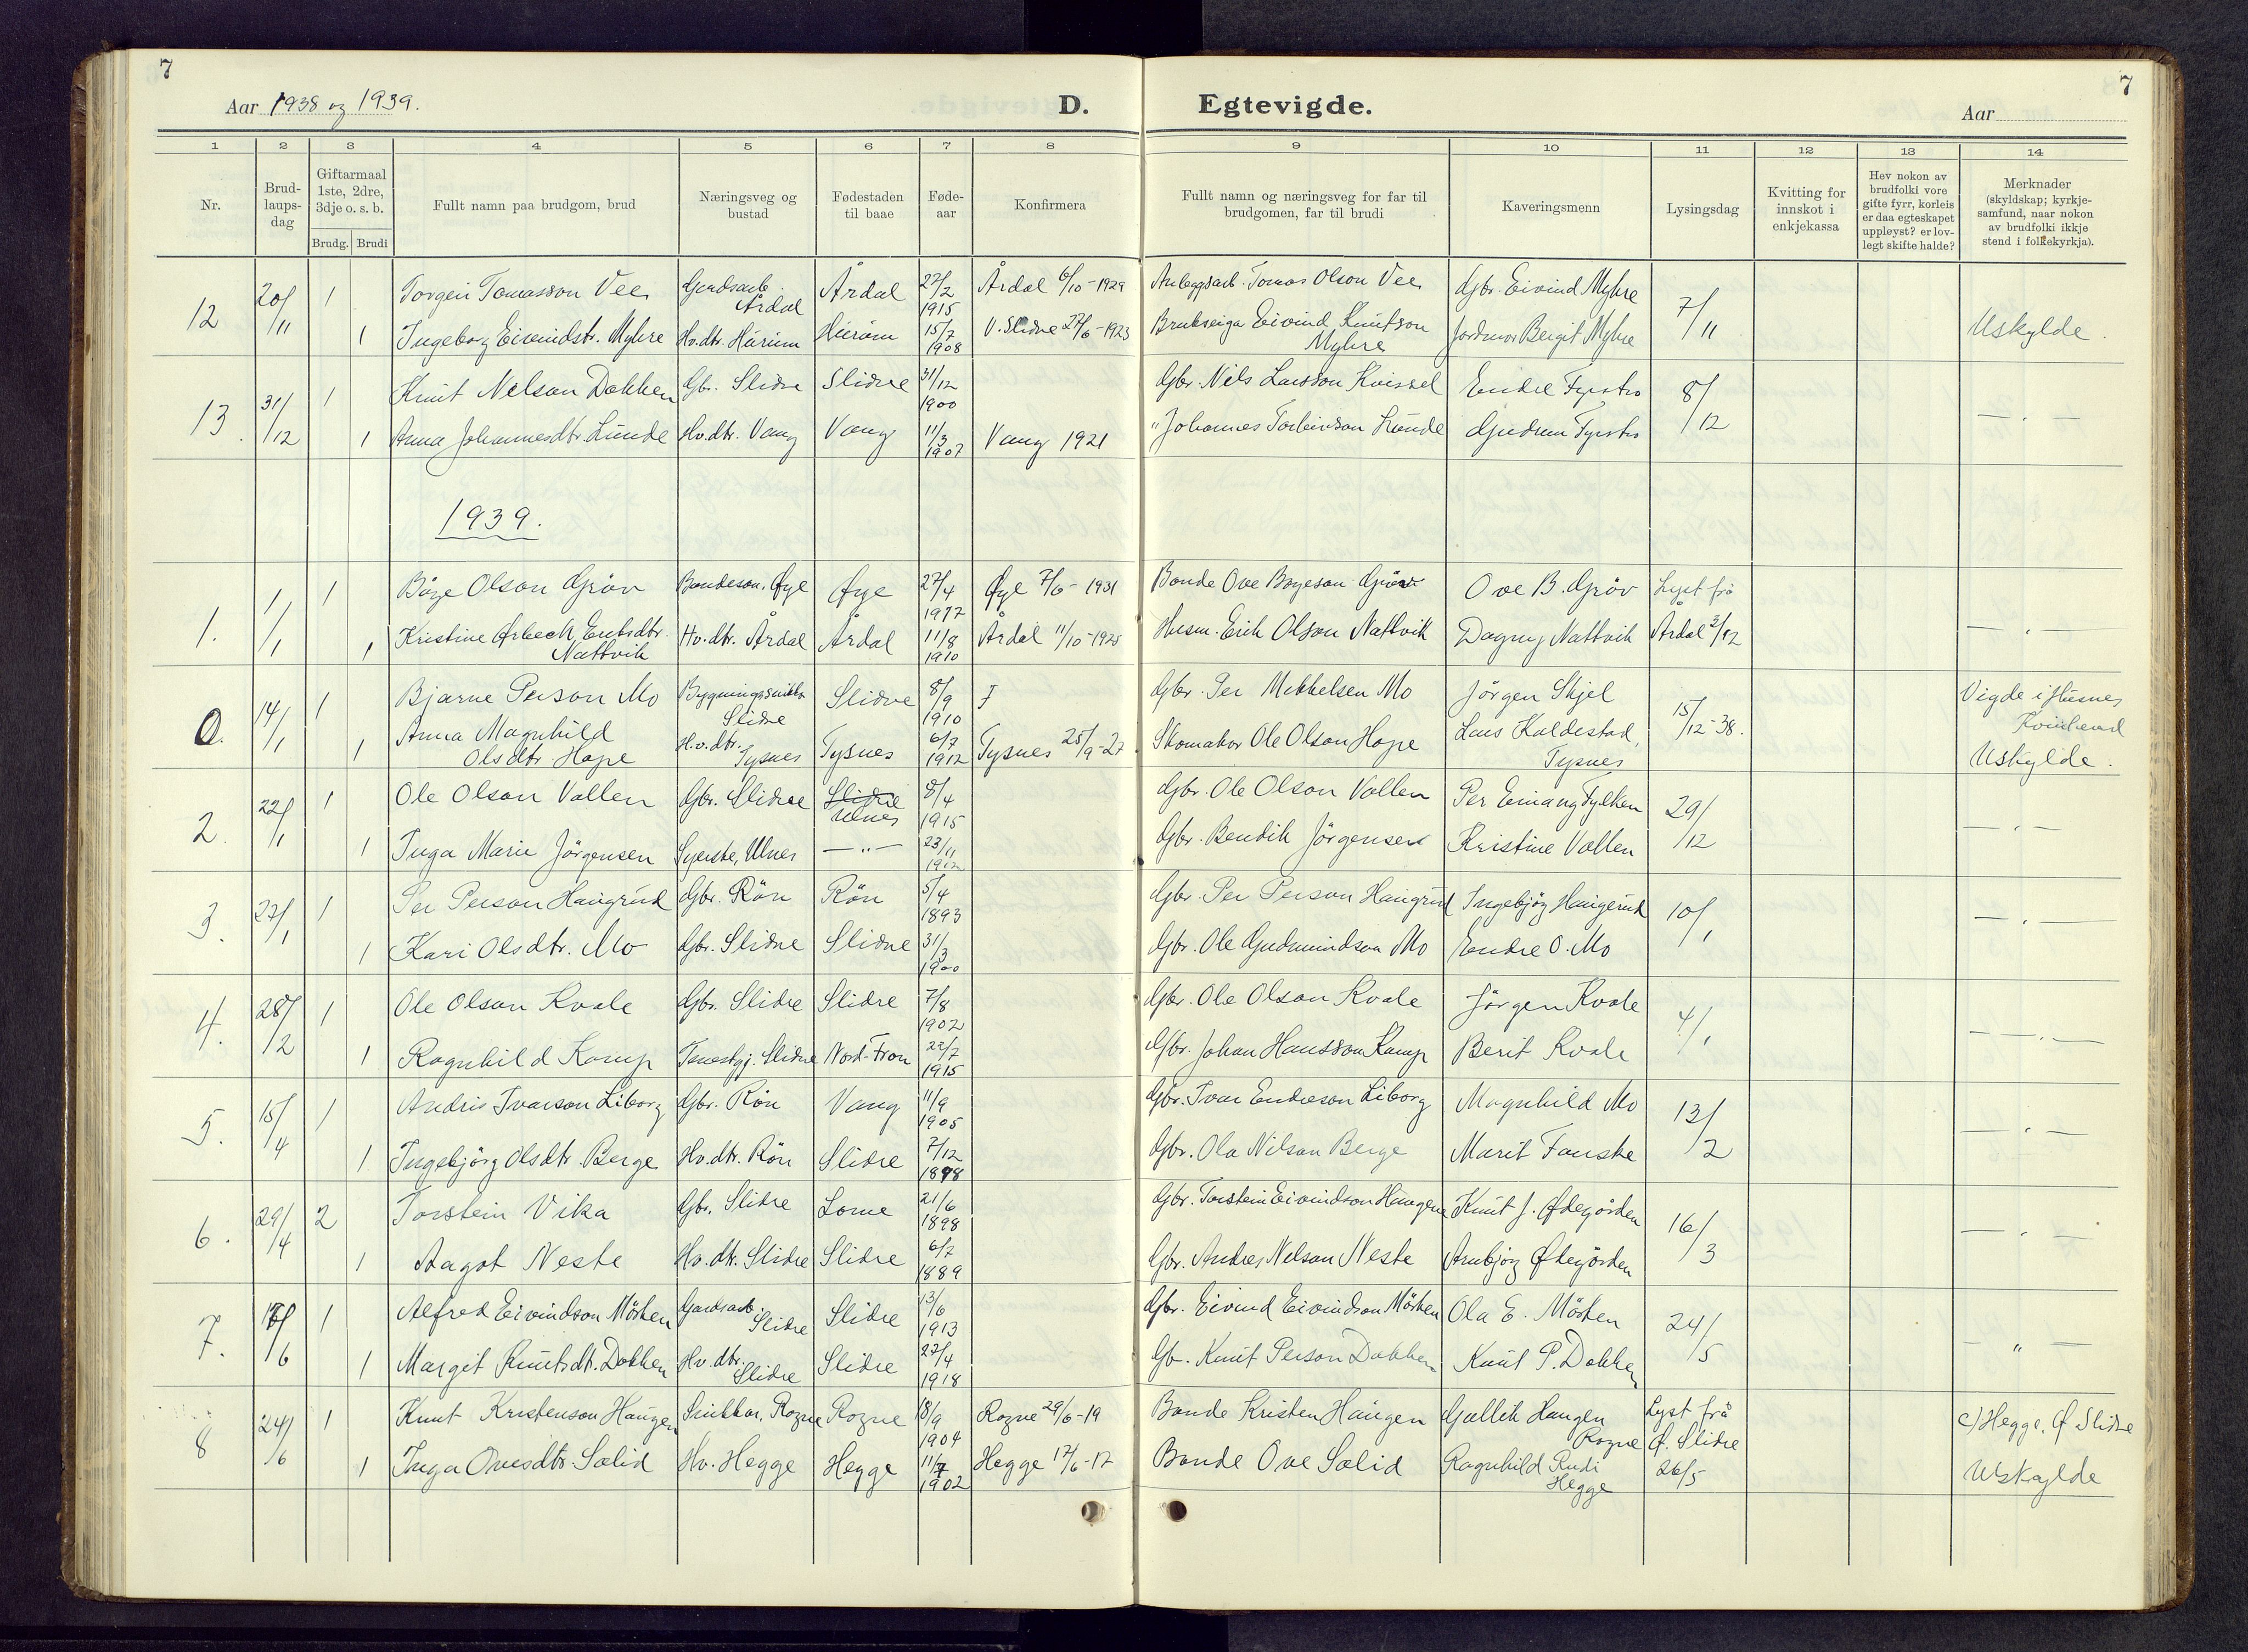 7
7
Aar 1938 og 1939.
D.
Egtevigde.
Aar
1 2 3 4 5 6 7 8 9 10 11 12 13 14
Nr.
Brud-
laups-
dag
Giftarmaal
1ste, 2dre,
3dje o. s. b.
Brudg. Brudi
Fullt namn paa brudgom, brud
Næringsveg og
bustad
Fødestaden
til baae
Føde-
aar
Konfirmera
Fullt namn og næringsveg for far til
brudgomen, far til brudi
Kaveringsmenn
Lysingsdag
Kvitting for
innskot i
enkjekassa
Hev nokon av
brudfolki vore
gifte fyrr, korleis
er daa egteskapet
uppløyst? er lov-
legt skifte halde?
Merknader
(skyldskap; kyrkje-
samfund, naar nokon
av brudfolki ikkje
stend i folkekyrkja).
12 20/11 1 Torgeir Tomasson Vee Gardsarb. Årdal Årdal 22/2 1915 Årdal 6/10-1929 Anleggsarb. Tomas Olson Vee Gbr. Eivind Myhre 7/11 Uskylde.
1 Ingeborg Eivindsdtr. Myhre Hv.dtr. Hurum Hurum 15/7 1908 V. Slidre 27/6-1923 Brukseiga Eivind Knutson Myhre Jordmor Bergit Myhre
13. 31/12 1 Knut Nelson Dokken Gbr. Slidre Slidre 31/12 1900 Gbr. Nils Larsson Kvissel Endre Fystro 8/12 — " —
1 Anna Johannesdtr. Lunde Hv.dtr. Vang Vang 11/3 1907 Vang 1921 " Johannes Torleivson Lunde Gudrun Fystro
1939.
1. 1/1 1 Båge Olson Gröv Bondeson, Øye Øye 27/4 1917 Øye 7/6-1931 Bonde Ove Bogeson Gröv Ove B. Gröv Lyst frå
1 Kristine Ørbech Eriksdtr. Nattvik Hv.dtr. Årdal Årdal 11/8 1910 Årdal 11/10-1925 Husm. Erik Olson Nattvik Dagny Nattvik Årdal 3/12 — " —
0. 14/1 1 Bjarne Person Mo Bygningssnikkar Slidre Slidre 8/9 1910 Gbr. Per Mikkelsen Mo Jörgen Skjel 15/12-38. Vigde i Husnes
1 Anna Magnhild Olsdtr Hope H.v.dtr. Tysnes Tysnes 6/7 1912 Tysnes 25/9-27 Skomakar Ole Olson Hope Lars Kaldestad, Tysnes Kvinherad Uskylde.
2. 22/1 1 Ole Olson Vallen Gbr. Slidre Slidre Ulnes 8/4 1915 Gbr. Ole Olson Vallen Per Einang Fylken 29/12 — " —
1 Inga Marie Jörgensen Syerske, Ulnes — " — 23/11 1912 Gbr. Bendik Jörgensen Kristine Vallen
3. 27/1 1 Per Person Haugrud Gbr. Rön Rön 5/4 1893 Gbr. Per Person Haugrud Ingebjög Haugerud 10/1 — " —
1 Kari Olsdtr. Mo Gbr. Slidre Slidre 31/3 1900 Gbr. Ole Gudmundson Mo Endre O. Mo
4. 28/2 1 Ole Olson Kvale Gbr. Slidre Slidre 7/8 1902 Gbr. Ole Olson Kvale Jörgen Kvale 4/1 — " —
1 Ragnhild Kamp Tenestgj. Slidre Nord-Fron 22/7 1915 Gbr. Johan Hansson Kamp Berit Kvale
5. 15/4 1 Andris Ivarson Liborg Gbr. Rön Vang 11/9 1905 Gbr. Ivar Endreson Liborg Magnhild Mo 13/2 — " —
1 Ingebjörg Olsdtr. Berge Hv.dtr. Rön Slidre 7/12 1898 Gbr. Ola Nilson Berge Marit Fauske
6. 29/4 2 Torstein Vika Gbr. Slidre Lome 21/6 1898 Gbr. Torstein Eivindson Haugene Knut J. Ødegården 16/3 — " —
1 Aagot Neste Hv.dtr. Slidre Slidre 6/7 1889 Gbr. Andres Nelson Neste Arnbjörg Ødegården
7. 17/6 1 Alfred Eivindson Mörken Gardsarb. Slidre Slidre 13/6 1913 Gbr. Eivind Eivindson Mörken Ola E. Mörken 24/5 — " —
1 Margit Knutsdt. Dokken Hv.dtr. Slidre Slidre 27/4 1918 Gb. Knut Person Dokken Knut P. Dokken
8 24/6 1 Knut Kristenson Haugen Snikkar, Rogne Rogne 18/9 1904 Rogne 29/6-19 Bonde Kristen Haugen Gullik Haugen Rogne Lyst frå Ø. Slidre c) Hegge, Ø Slidre
1 Inga Ovesdtr. Solid Hv. Hegge Hegge 11/7 1902 Hegge 17/6-17 Bonde Ove Solid Ragnhild Rudi Hegge 26/5 Uskylde